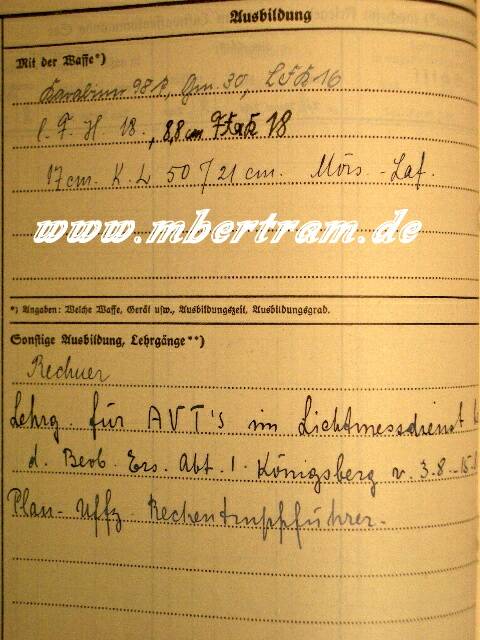 Ausbildung
Mit der Waffe*)
Karabiner 98k, Gm. 30, LFK 16
l. F. H 18., 8,8 cm Flak 18
17 cm. K. L 50 / 21 cm. Mörs.-Laf.
www.mbertram.de
*) Angaben: Welche Waffe, Gerät usw., Ausbildungszeit, Ausbildungsgrad.
Sonstige Ausbildung, Lehrgänge**)
Rechner
Lehrg. für AVT's im Lichtmessdienst
d. Beob. Ers. Abt. 1. Königsberg v. 3.8-15.
Plan-Uffz. Rechentruppführer.